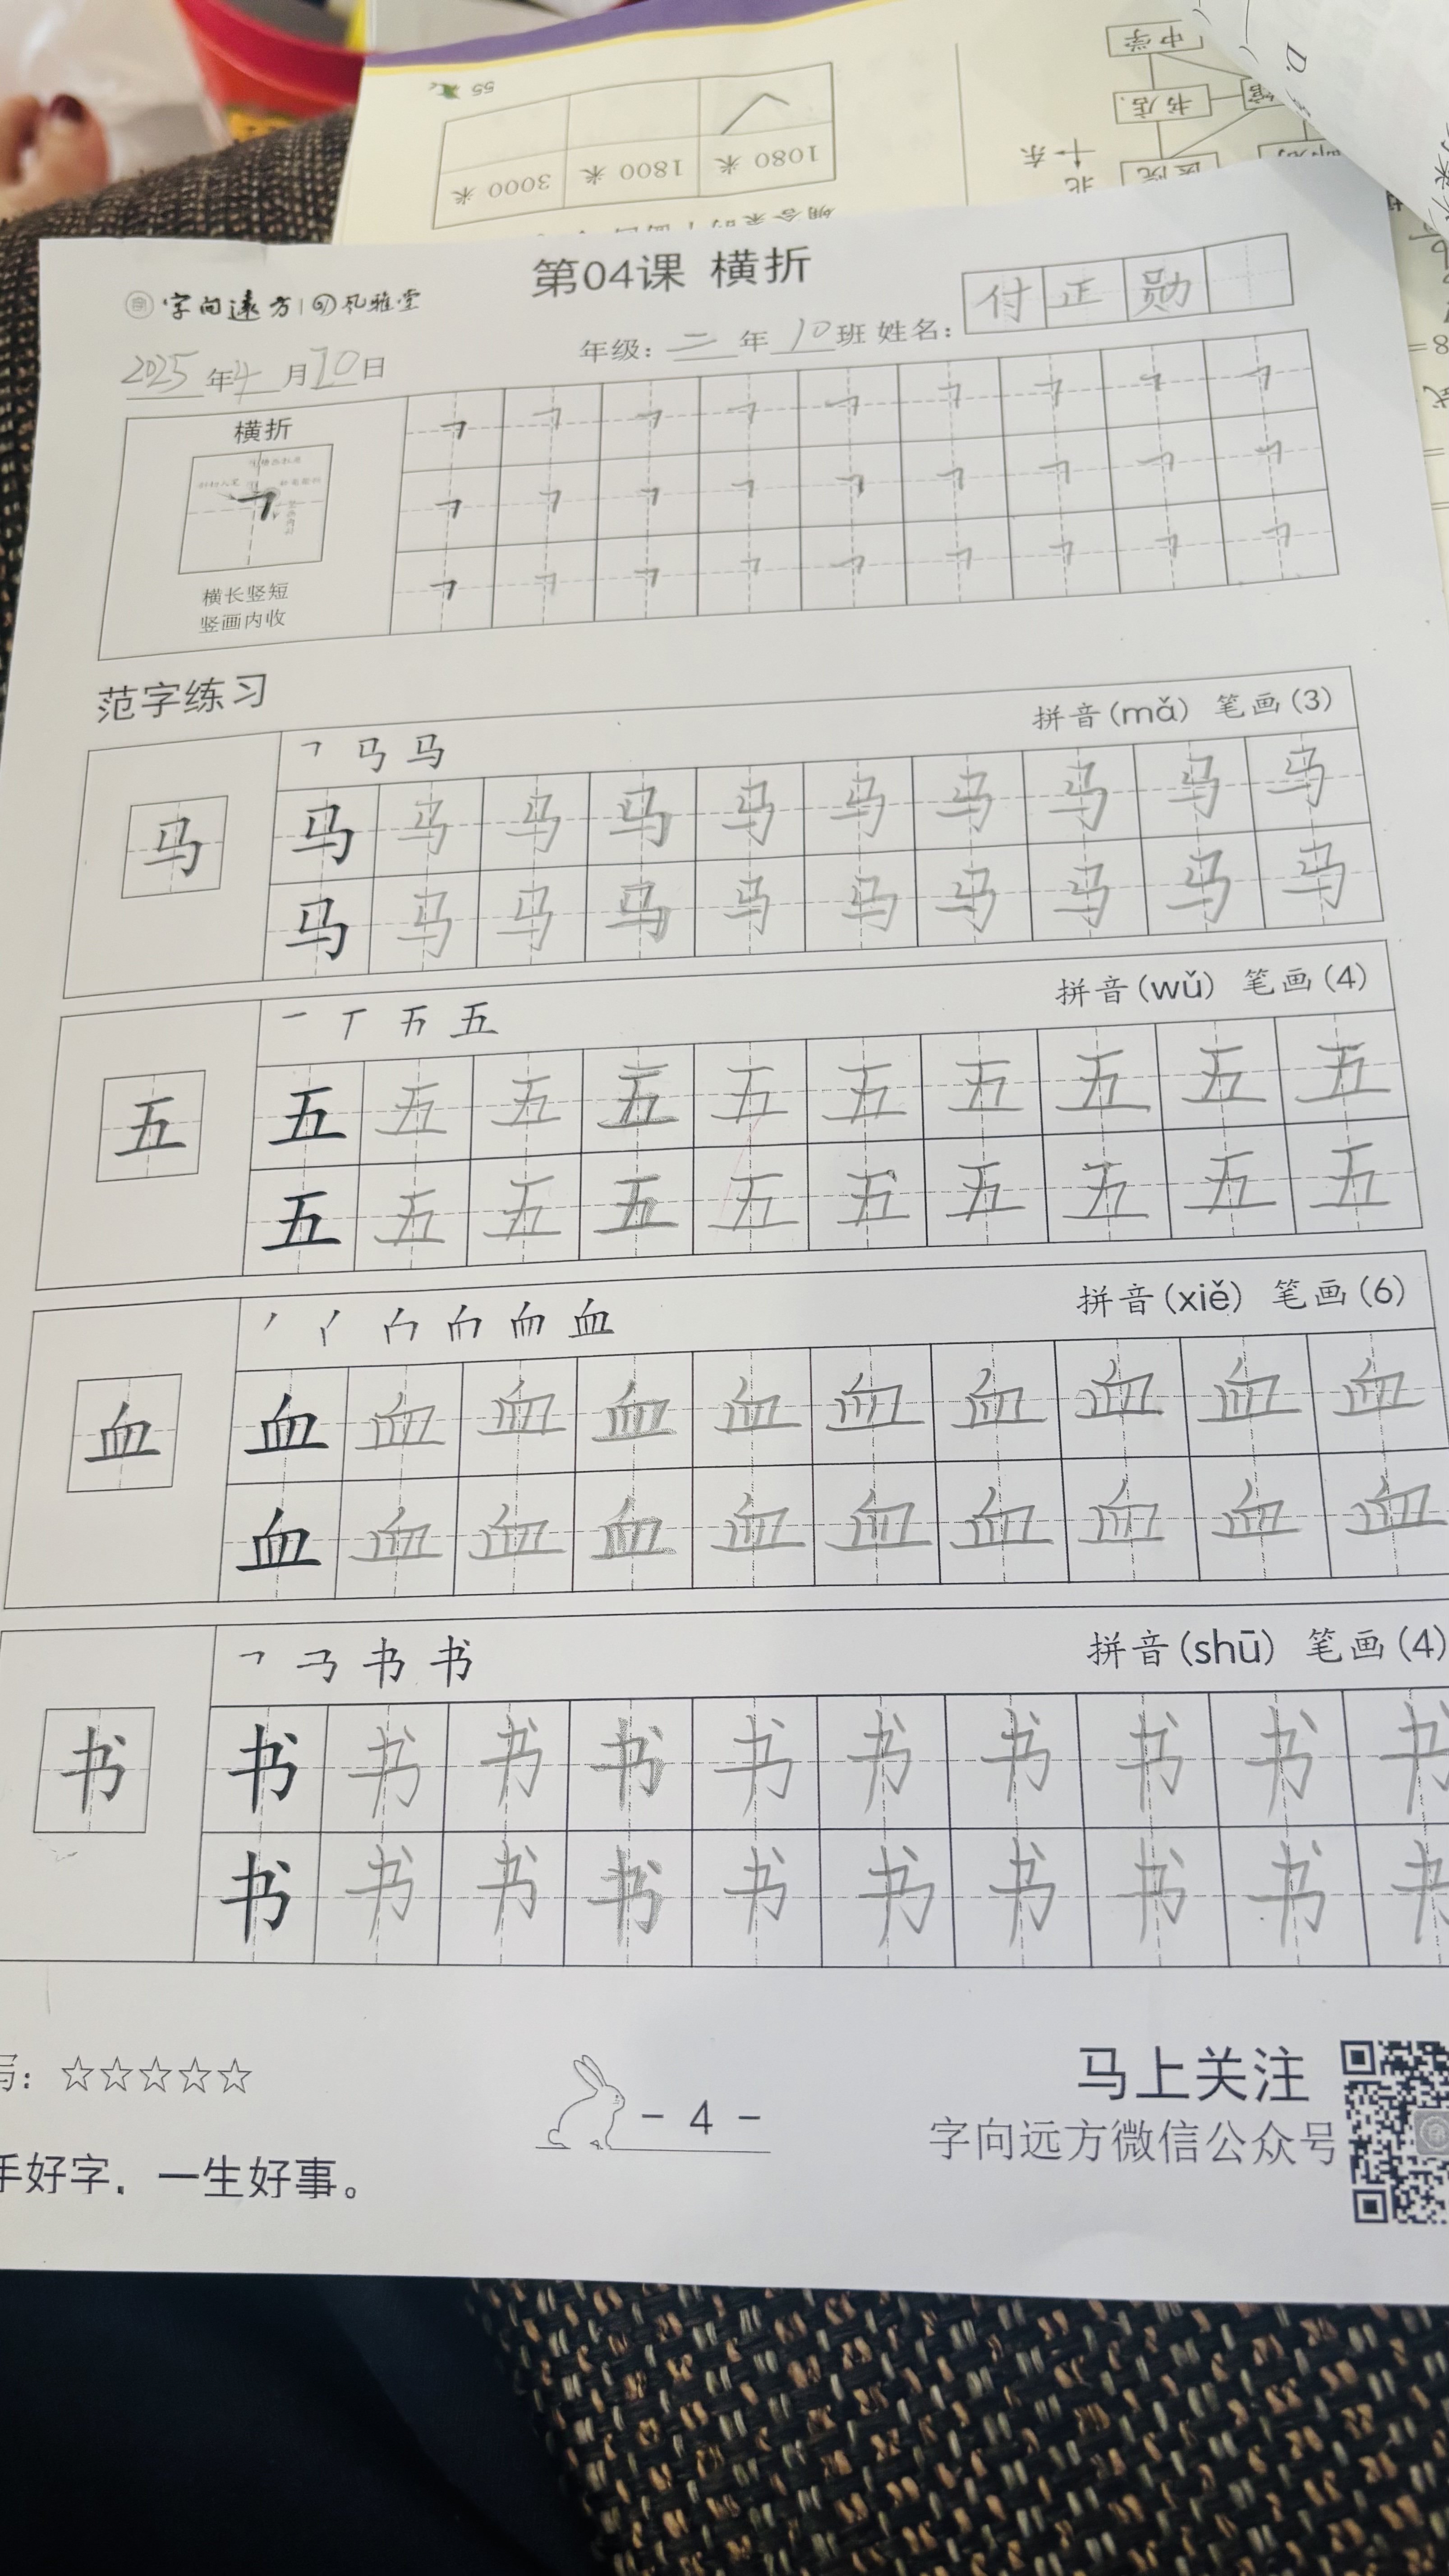 中学
书店
医院
北
东
55
1080 米
1800 米
3000 米
D.
第04课 横折
字向远方 风雅堂
2025年4月10日
年级：二年10班 姓名：付正勋
横折
横长竖短
竖画内收
范字练习
拼音(mǎ) 笔画(3)
㇕ 马 马
马 马 马 马 马 马 马 马 马 马 马
马 马 马 马 马 马 马 马 马 马
拼音(wǔ) 笔画(4)
一 丅 五
五 五 五 五 五 五 五 五 五 五 五
五 五 五 五 五 五 五 五 五 五
拼音(xiě) 笔画(6)
血
血 血 血 血 血 血 血 血 血 血 血
血 血 血 血 血 血 血 血 血 血
拼音(shū) 笔画(4)
㇕ 书 书
书 书 书 书 书 书 书 书 书 书 书
书 书 书 书 书 书 书 书 书 书
写：☆☆☆☆☆
- 4 -
马上关注
字向远方微信公众号
手好字，一生好事。